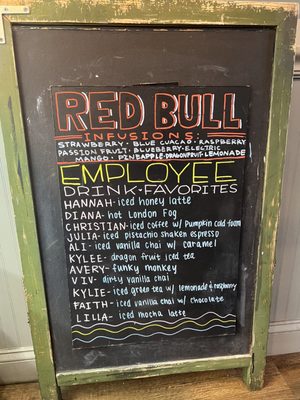 RED BULL
INFUSIONS:
STRAWBERRY · BLUE CUACAO · RASPBERRY
PASSION FRUIT · BLUEBERRY · ELECTRIC
MANGO · PINEAPPLE · DRAGONFRUIT · LEMONADE
EMPLOYEE
DRINK · FAVORITES
HANNAH- iced honey latte
DIANA- hot London Fog
CHRISTIAN- iced coffee w/ Pumpkin cold foam
JULIA- iced pistachio shaken espresso
ALI- iced vanilla chai w/ caramel
KYLEE- dragon fruit iced tea
AVERY- funky monkey
VIV- dirty vanilla chai
KYLIE- iced green tea w/ lemonade & raspberry
FAITH- iced vanilla chai w/ chocolate
LILLA- iced mocha latte